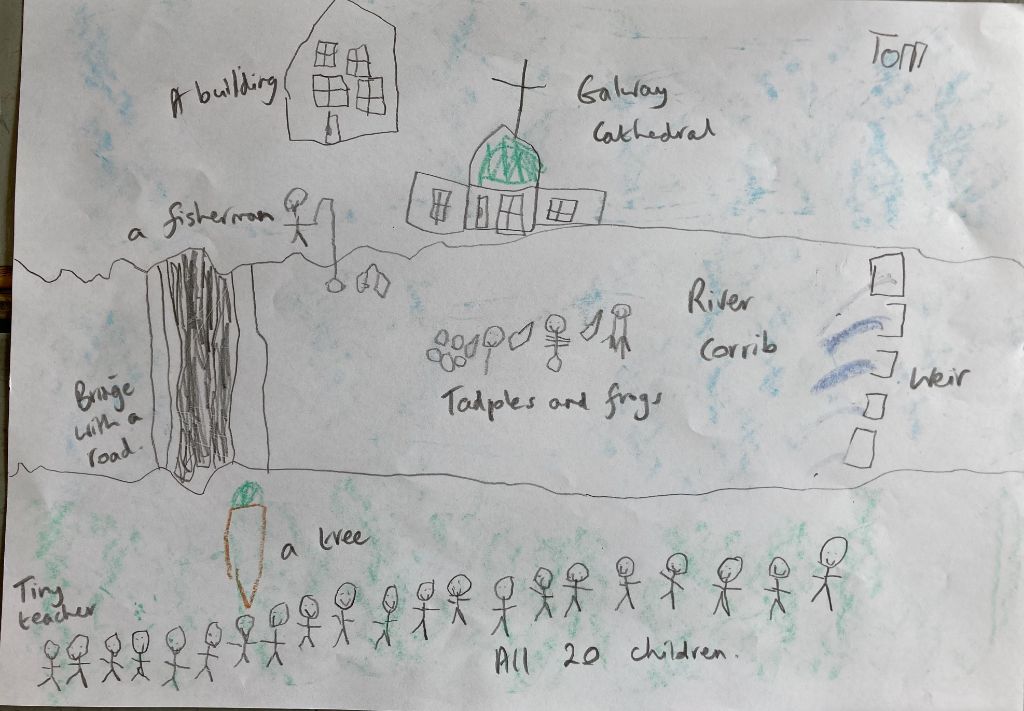 Tom
A building
Galway
Cathedral
a fisherman
River
Corrib
Weir
Tadples and frogs
Bringe
with a
road.
a tree
Tiny
teacher
All 20 children.